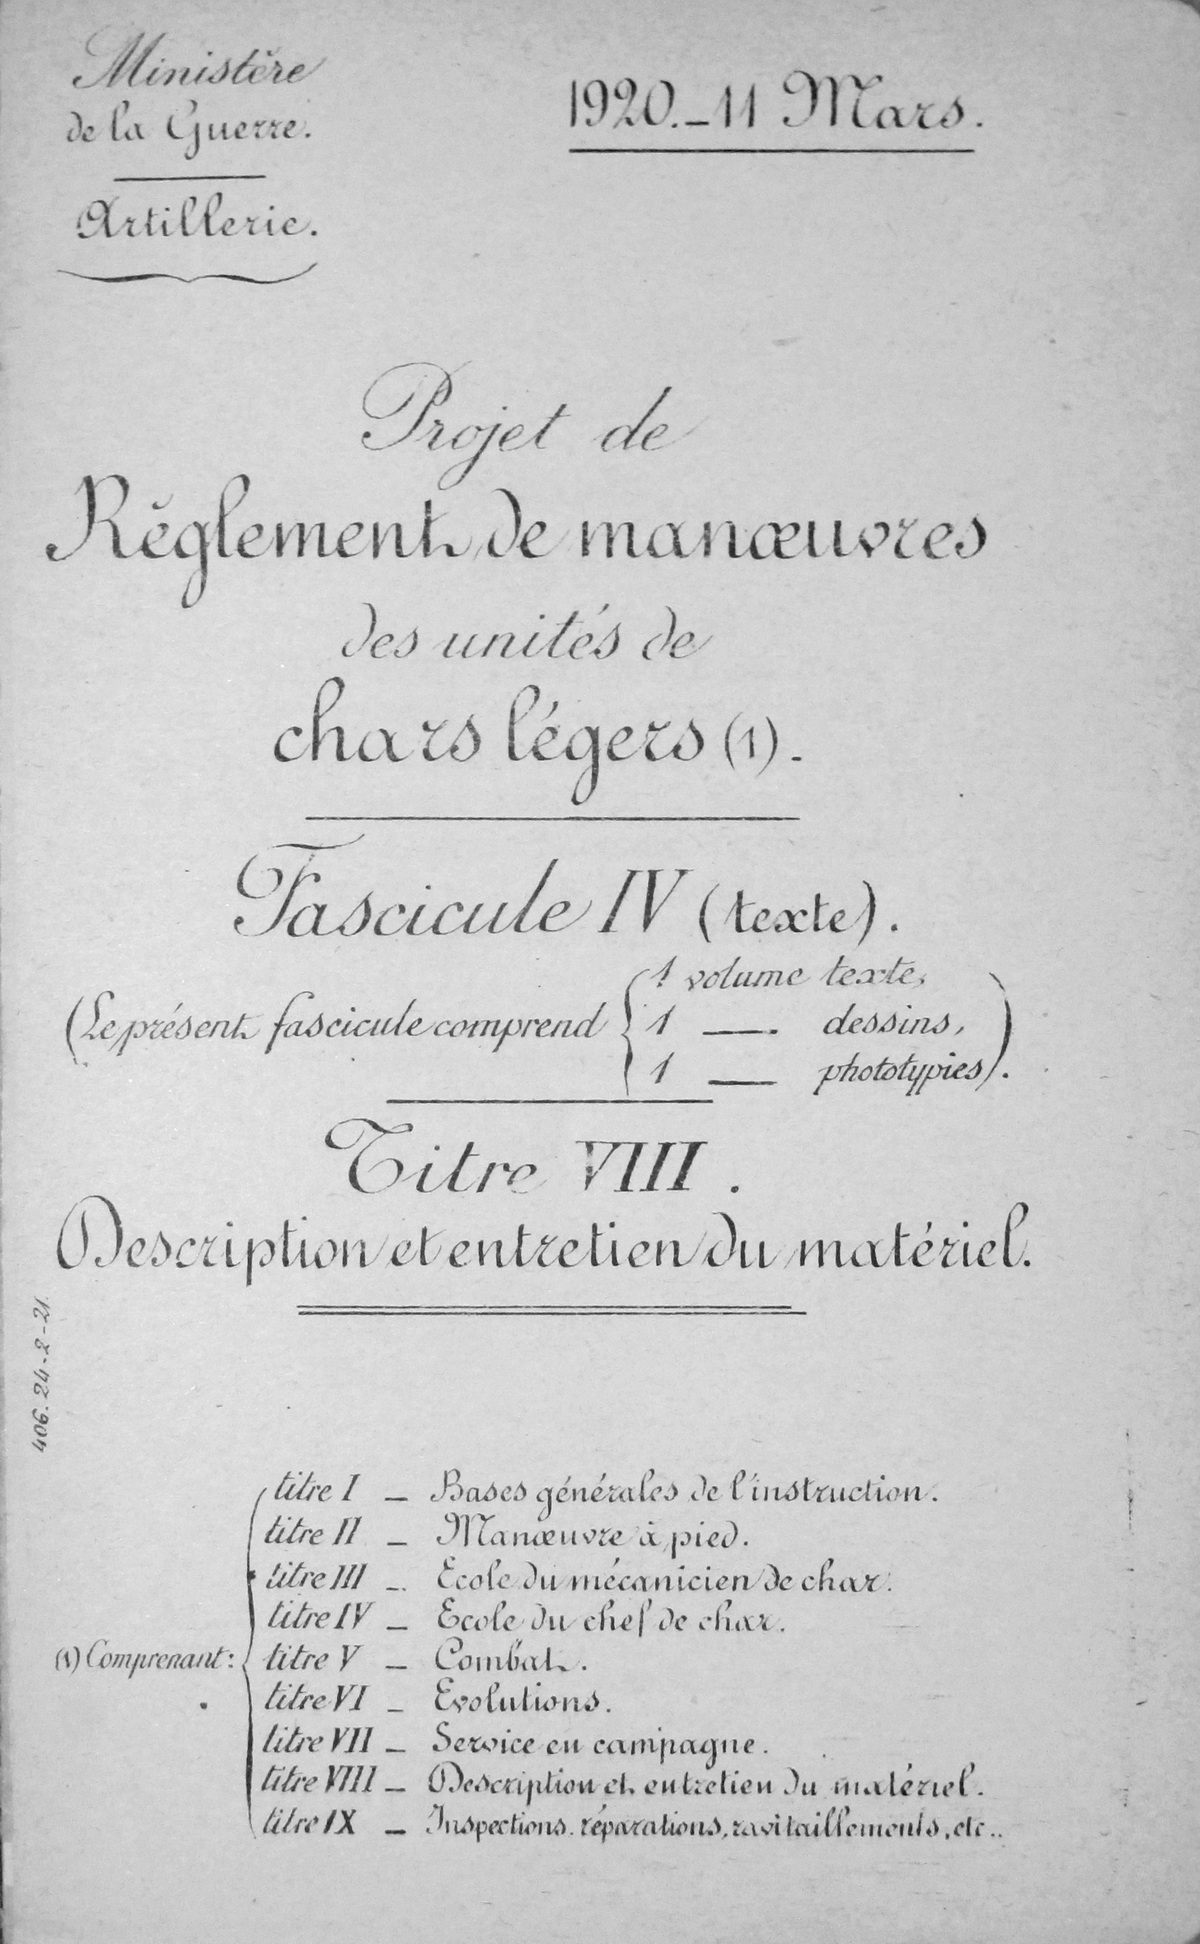 Ministère
de la Guerre.
Artillerie.
1920._11 Mars.
Projet de
Règlement de manœuvres
des unités de
chars légers (1).
Fascicule IV (texte).
(Le présent fascicule comprend { 1 volume texte,
1 —. dessins,
1 — phototypies).
Titre VIII.
Description et entretien du matériel.
406. 24-2-21.
(1) Comprenant:
titre I _ Bases générales de l'instruction.
titre II _ Manœuvre à pied.
titre III _. Ecole du mécanicien de char.
titre IV _ Ecole du chef de char.
titre V _ Combat.
titre VI _ Evolutions.
titre VII _ Service en campagne.
titre VIII _ Description et entretien du matériel.
titre IX _ Inspections. réparations, ravitaillements, etc..